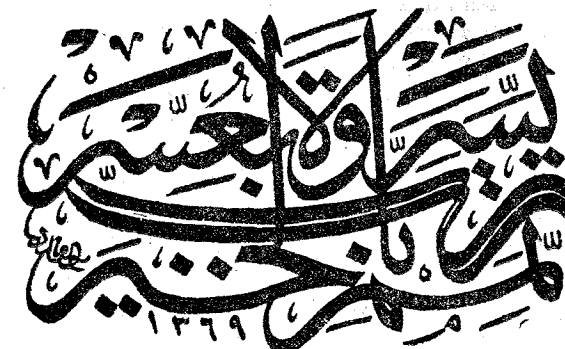 رب يسر ولا تعسر
رب تمم بالخير
١٣٦٩